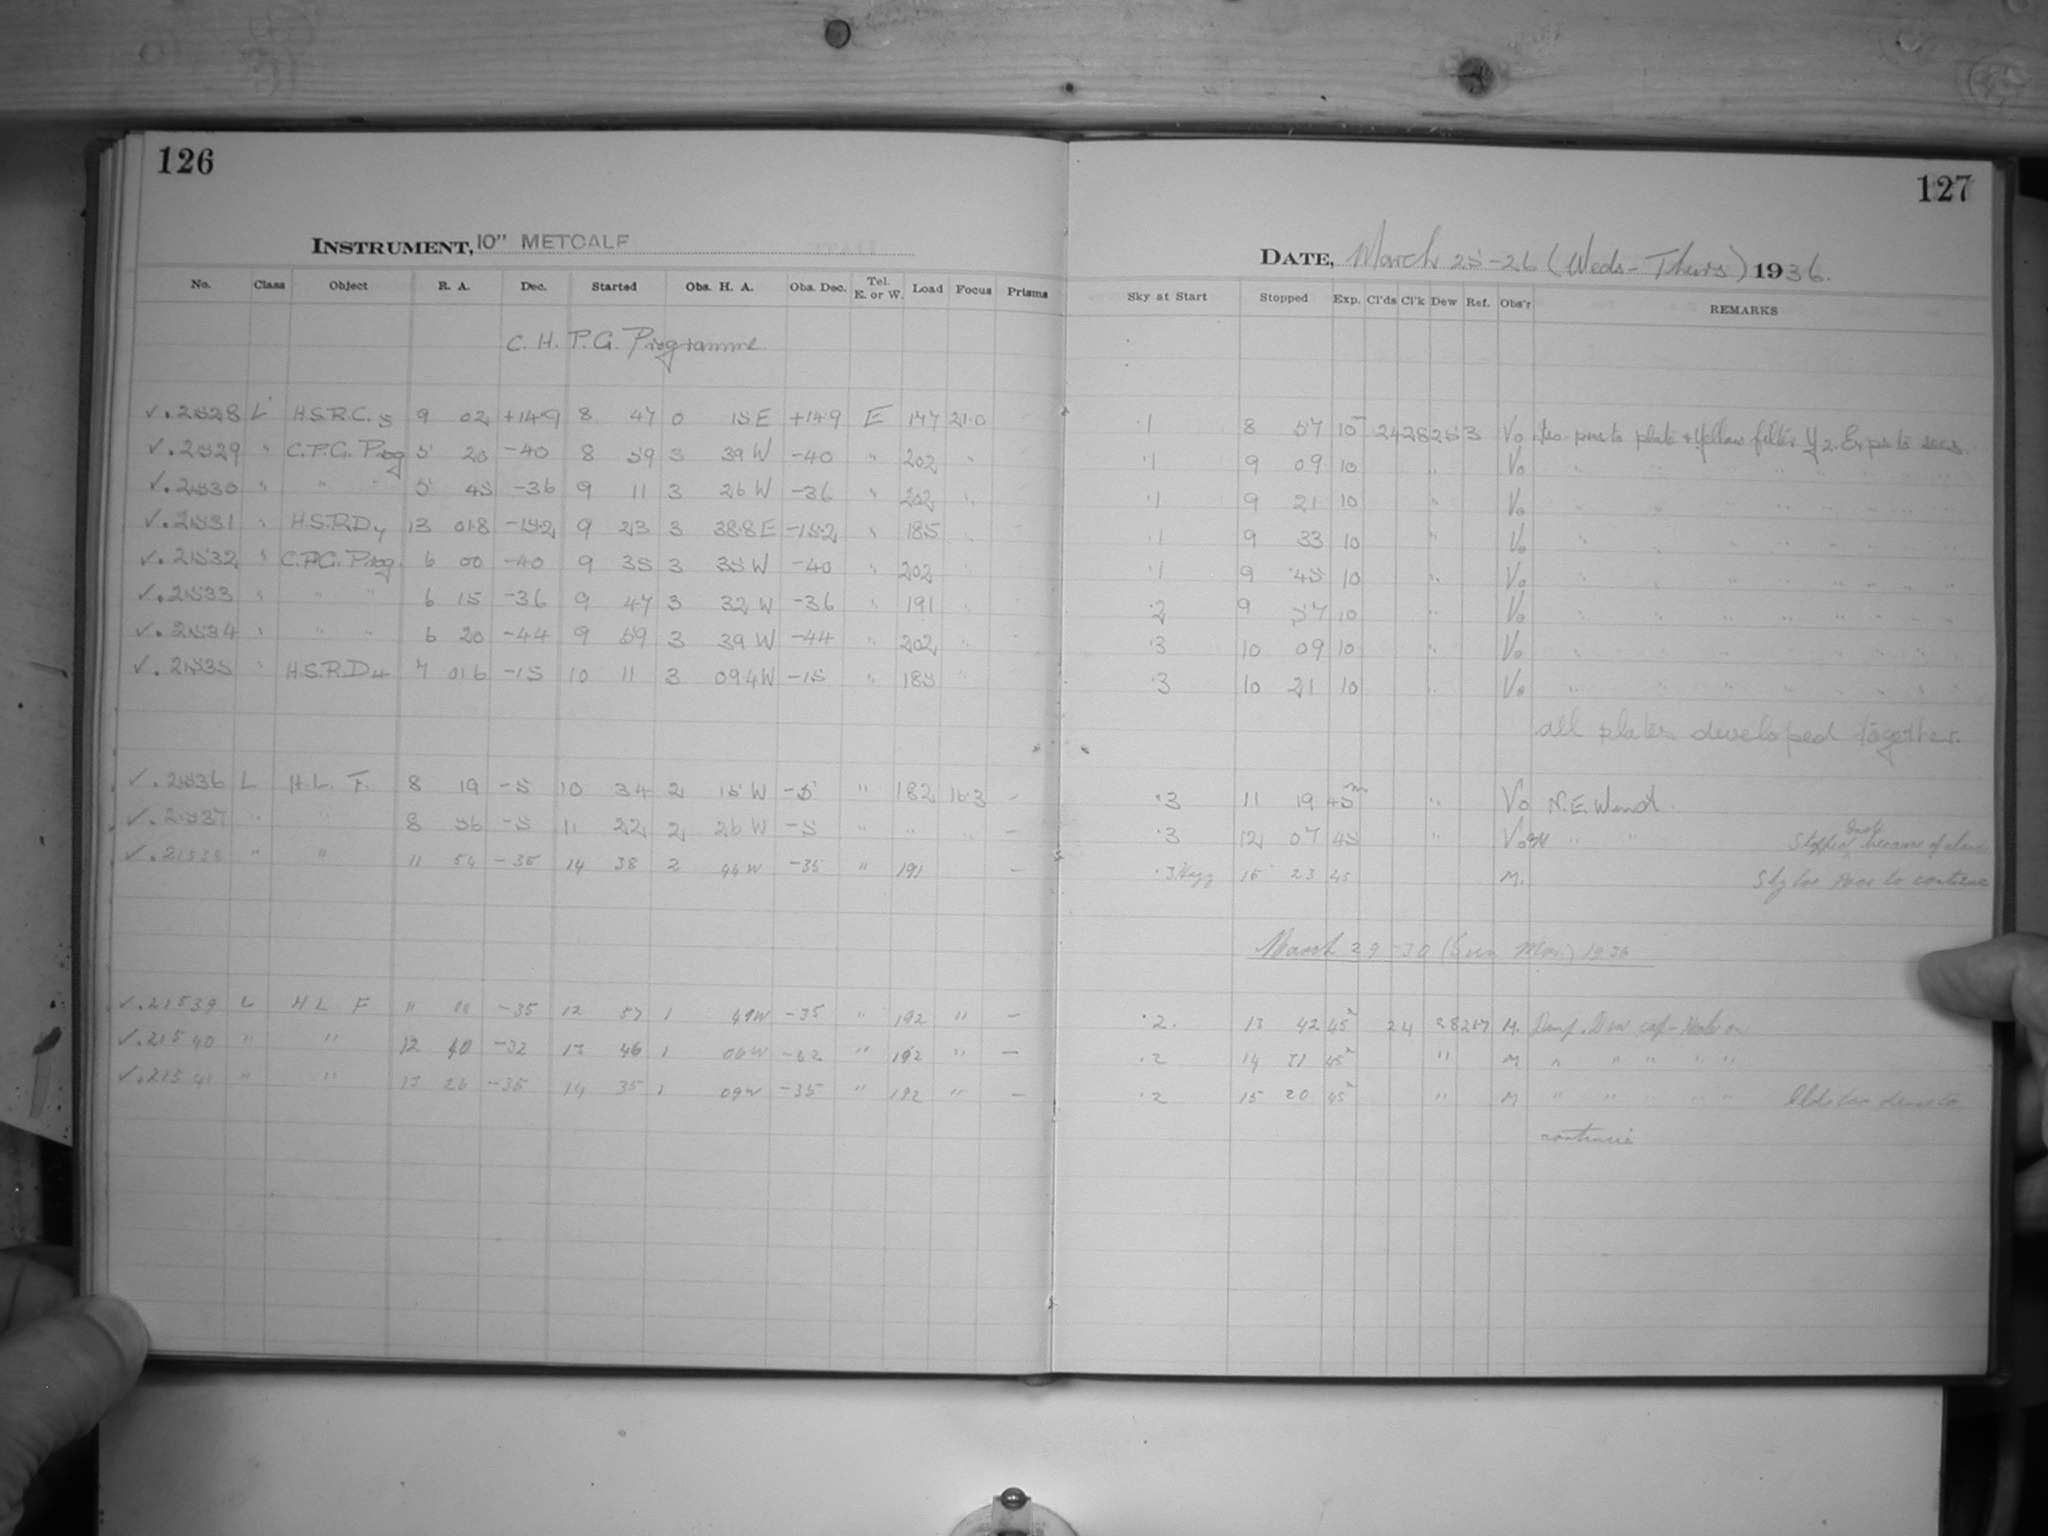 126
127
INSTRUMENT, 10" METCALF
DATE, March 25-26 (Weds-Thurs) 1936.
No. Class Object R. A. Dec. Started Obs. H. A. Obs. Dec. Tel. E. or W. Load Focus Prisms Sky at Start Stopped Exp. Cl'ds Cl'k Dew Ref. Obs'r REMARKS
C. H. P.G. Programme
✓. 21528 L H.S.R.C. 5 9 02 +14.9 8 47 0 15 E +14.9 E 147 21.0 .1 8 57 10 24 28 25 3 Vo Iso-press plate & Yellow filter Y2. Exps 10 secs.
✓. 21529 " C.P.G. Prog 5 20 -40 8 59 3 39 W -40 " 202 " .1 9 09 10 " Vo " " " " " "
✓. 21530 " " " 5 45 -36 9 11 3 26 W -36 " 202 " .1 9 21 10 " Vo " " " " " "
✓. 21531 " H.S.R.D7 13 01.8 -15.2 9 23 3 38.8 E -15.2 " 185 " .1 9 33 10 " Vo " " " " " "
✓. 21532 " C.P.G. Prog. 6 00 -40 9 35 3 35 W -40 " 202 " .1 9 45 10 " Vo " " " " " "
✓. 21533 " " " 6 15 -36 9 47 3 32 W -36 " 191 " .2 9 57 10 " Vo " " " " " "
✓. 21534 " " " 6 20 -44 9 59 3 39 W -44 " 202 " .3 10 09 10 " Vo " " " " " "
✓. 21535 " H.S.R.D4 7 01.6 -15 10 11 3 09.4 W -15 " 185 " .3 10 21 10 " Vo " " " " " "
all plates developed together.
✓. 21536 L H L. F. 8 19 -5 10 34 2 15 W -5 " 182 16.3 - .3 11 19 45m " Vo N.E. Wind.
✓. 21537 " " 8 56 -5 11 22 2 26 W -5 " " " - .3 12 07 45 " Vo " " Stopped because of clouds
✓. 21538 " " 11 54 -35 14 38 2 44 W -35 " 191 - .3 Hazy 15 23 45 M. Sky too poor to continue
March 29-30 (Sun Mon) 1936
✓. 21539 L H L F " -35 12 57 1 49 W -35 " 192 " - .2. 13 42 45 24 28 25 7 M. Damp. Dew cap-Heater on
✓. 21540 " " 12 40 -32 13 46 1 06 W -32 " 192 " - .2 14 31 45 " M " " " " "
✓. 21541 " " 13 26 -35 14 35 1 09 W -35 " 192 " - .2 15 20 45 " M " " " " " Clds too dense to
continue